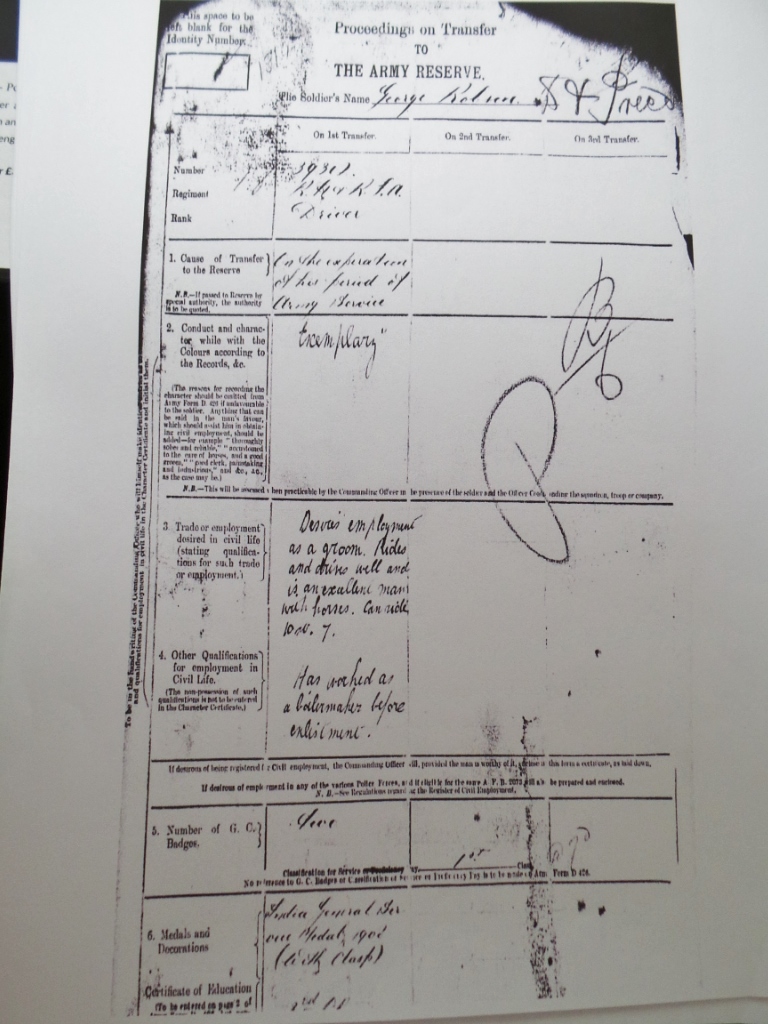 this space to be
left blank for the
Identity Number.
Proceedings on Transfer
TO
THE ARMY RESERVE.
The Soldier's Name George
On 1st Transfer.
On 2nd Transfer.
On 3rd Transfer.
Number
Regiment
Rank Driver
1. Cause of Transfer
to the Reserve
On the expiration
of his period of
Army Service
N.B.—If passed to Reserve by
special authority, the authority
is to be quoted.
2. Conduct and charac-
ter while with the
Colours according to
the Records, &c.
Exemplary
(The reasons for recording the
character should be omitted from
Army Form D. 426 if unfavourable
to the soldier. Anything that can
be said in the man's favour,
which should assist him in obtain-
ing civil employment, should be
added—for example "thoroughly
sober and reliable," "accustomed
to the care of horses, and a good
groom," "good clerk, painstaking
and industrious," and &c., &c.
as the case may be.)
N.B.—This will be assessed when practicable by the Commanding Officer in the presence of the soldier and the Officer Commanding the squadron, troop or company.
3 Trade or employment
desired in civil life
(stating qualifica-
tions for such trade
or employment.)
Desires employment
as a groom. Rides
and drives well and
is an excellent man
with horses. Can ride
7.
4. Other Qualifications
for employment in
Civil Life.
(The non-possession of such
qualifications is not to be entered
in the Character Certificate.)
Has worked as
a boilermaker before
enlistment.
If desirous of being registered for Civil employment, the Commanding Officer will, provided the man is worthy of it, in this form a certificate, as laid down.
If desirous of employment in any of the various Police Forces, and if eligible for the same A. F. B. will also be prepared and enclosed.
N. B.—See Regulations regarding the Register of Civil Employment.
5. Number of G. C.
Badges.
Classification for Service
1st Class
No reference to G. C. Badges or Classification of Service or Proficiency Pay is to be made in Army Form D 426.
6. Medals and
Decorations
India General Ser
vice Medal
(with Clasp)
Certificate of Education
(To be entered on page 2 of
To be in the handwriting of the Commanding Officer, who will himself make
and qualifications for employment in civil life in the Character Certificate and initial them.